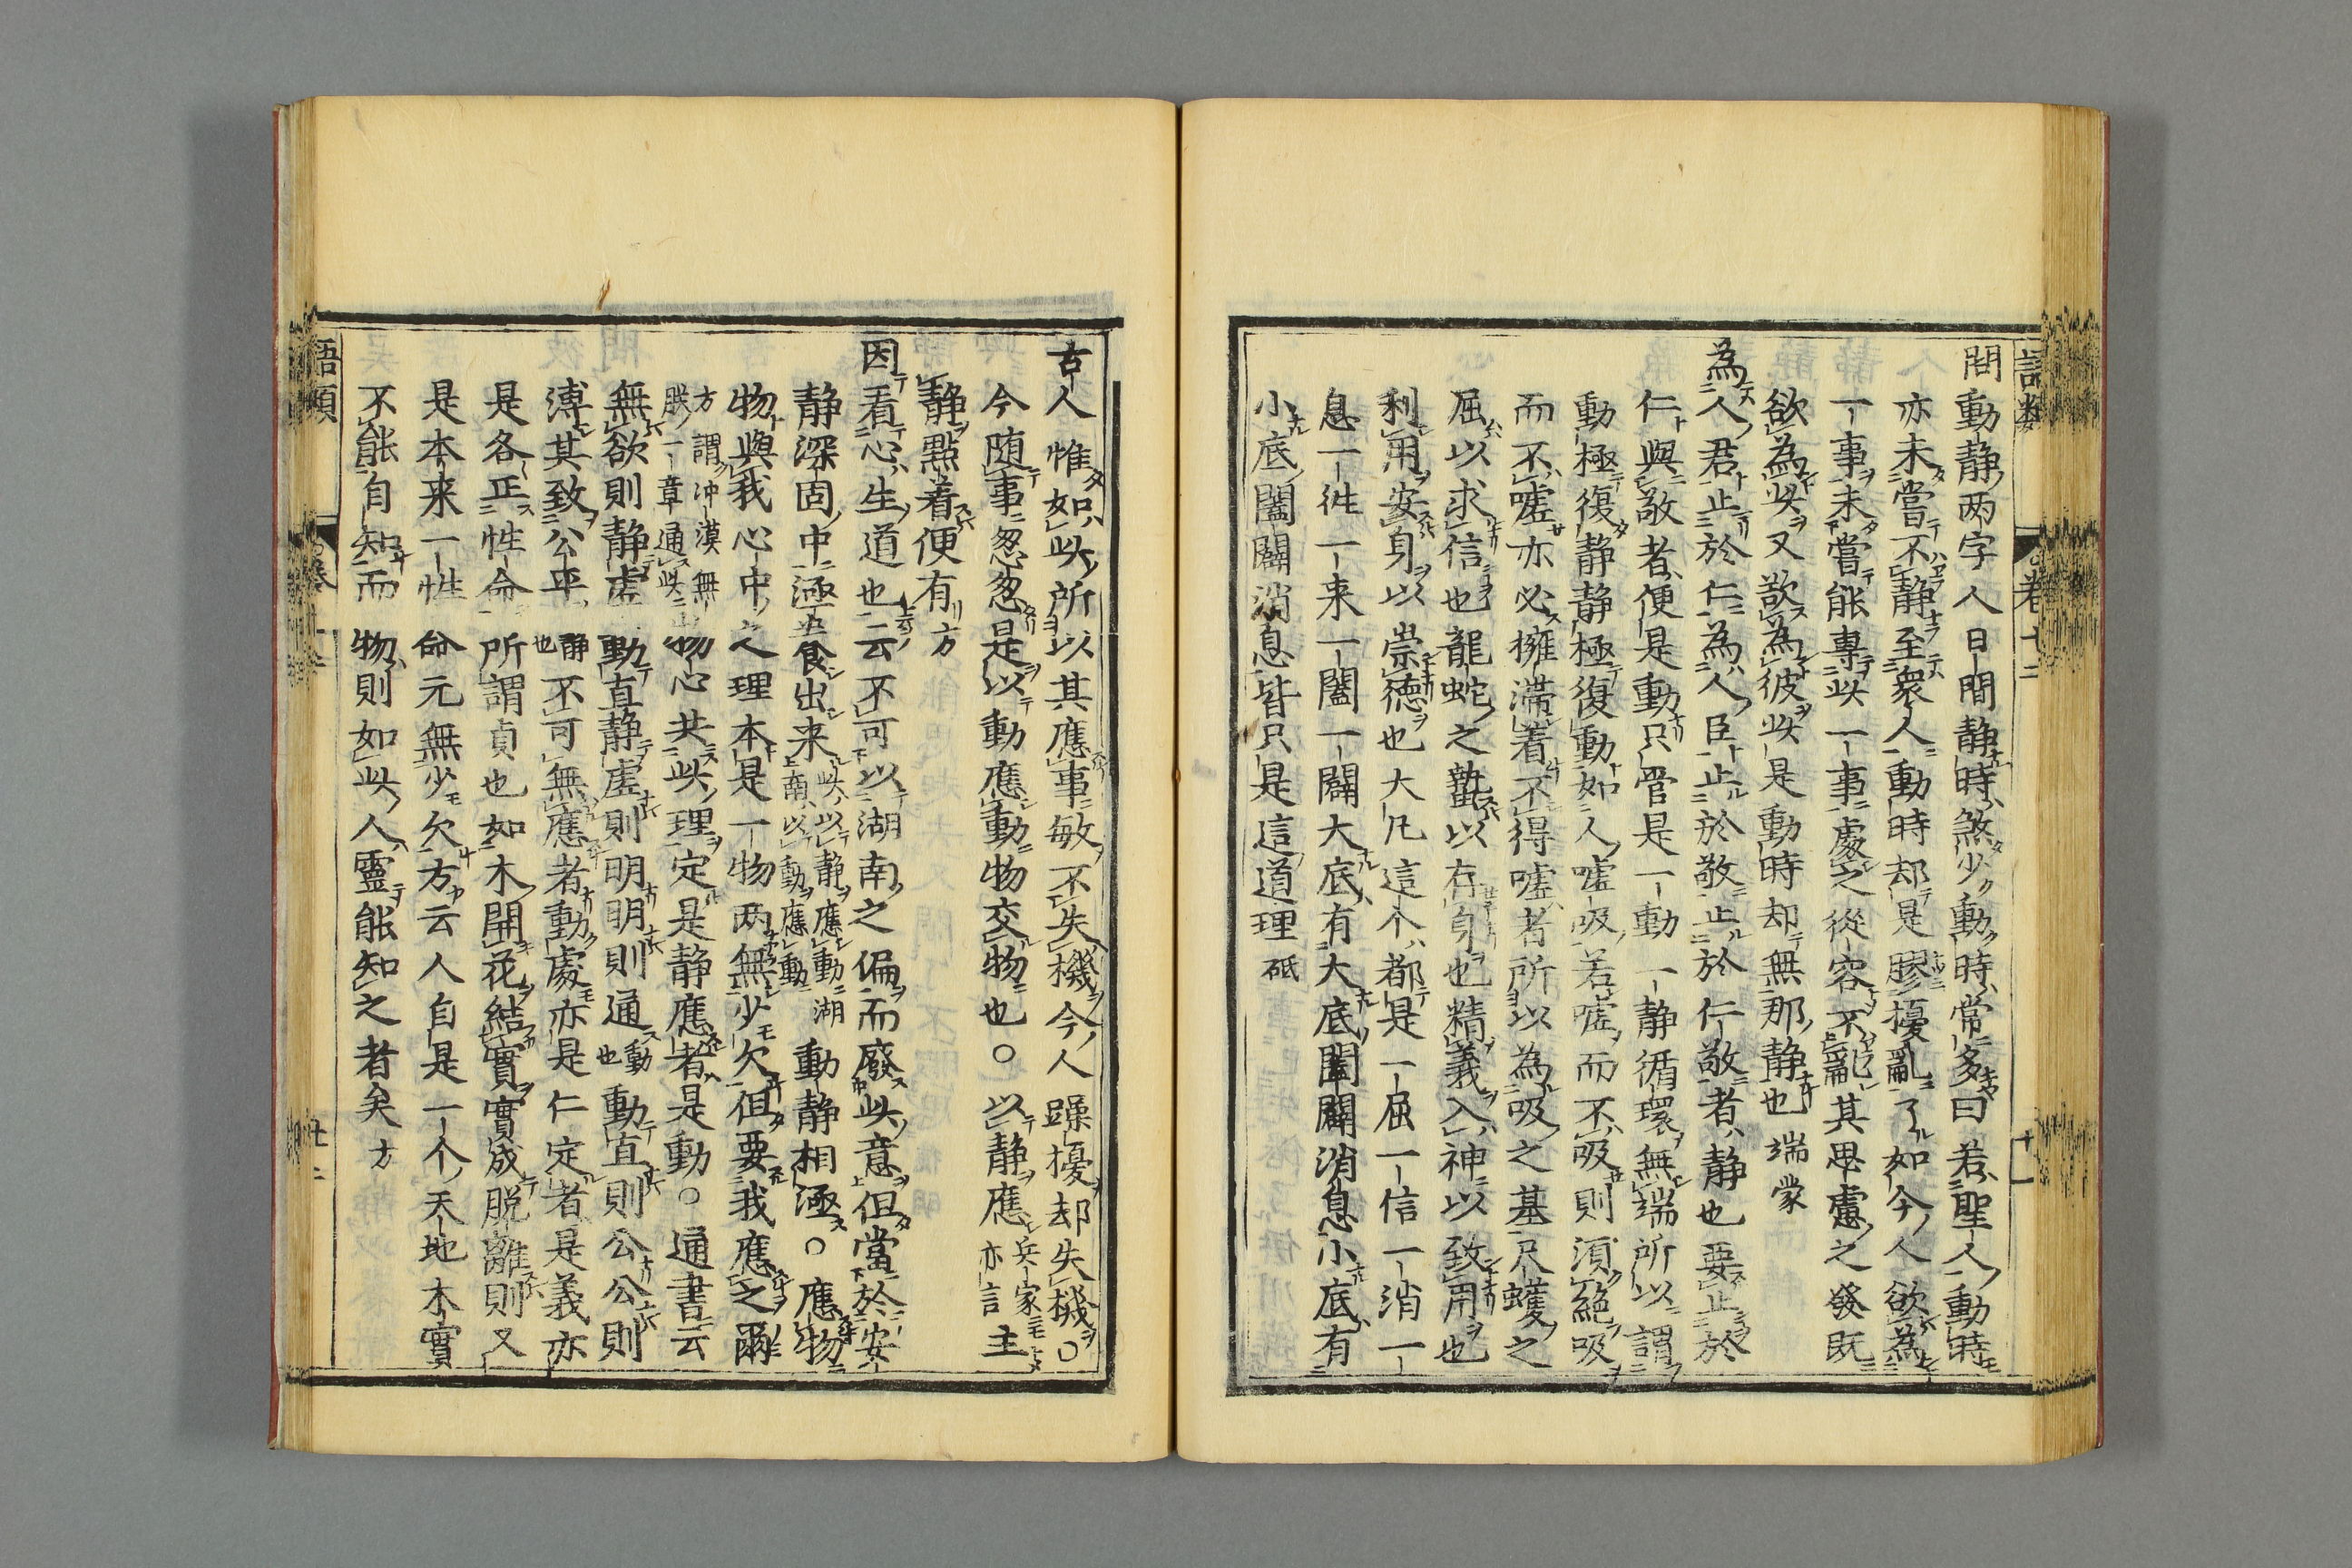 問動静两字人日間静時煞少動時常多曰若聖人動時
亦未嘗不静至衆人動時却是膠擾亂了如今人欲為
一事未嘗能專此一事處之從容不亂其思慮之發既
欲為此又欲為彼此是動時却無那静也端蒙
為人君止於仁為人臣止於敬止於仁敬者静也要止於
仁與敬者便是動只管是一動一静循環無端所以謂
動極復静静極復動如人嘘吸若嘘而不吸則須絶吸
而不嘘亦必擁滞着不得嘘者所以為吸之基尺蠖之
屈以求信也龍蛇之蟄以存身也精義入神以致用也
利用安身以崇德也大凡這个都是一屈一信一消一
息一徃一来一闔一闢大底有大底闔闢消息小底有
小底闔闢消息皆只是這道理砥
古人惟如此所以其應事敏不失機今人躁擾却失機○
今随事怱怱是以動應動物交物也○以静應兵家亦言主
静點着便有方
因看心生道也云不可以湖南之偏而廢此意但當於安
静深固中涵養出来此以静應動湖南以動應動動静相涵○應物
物與我心中之理本是一物两無少欠但要我應之爾
物心共此理定是静應者是動○通書云
方謂冲漠無朕一章通此
無欲則静虚動直静虚則明明則通動也動直則公公則
溥其致公平静也不可無應者動處亦是仁定者是義亦
是各正性命所謂貞也如木開花結實實成脱離則又
是本来一性命元無少欠方云人自是一个天地木實
不能自知而物則如此人靈能知之者矣方
語類
卷十二
十一
語類
十二